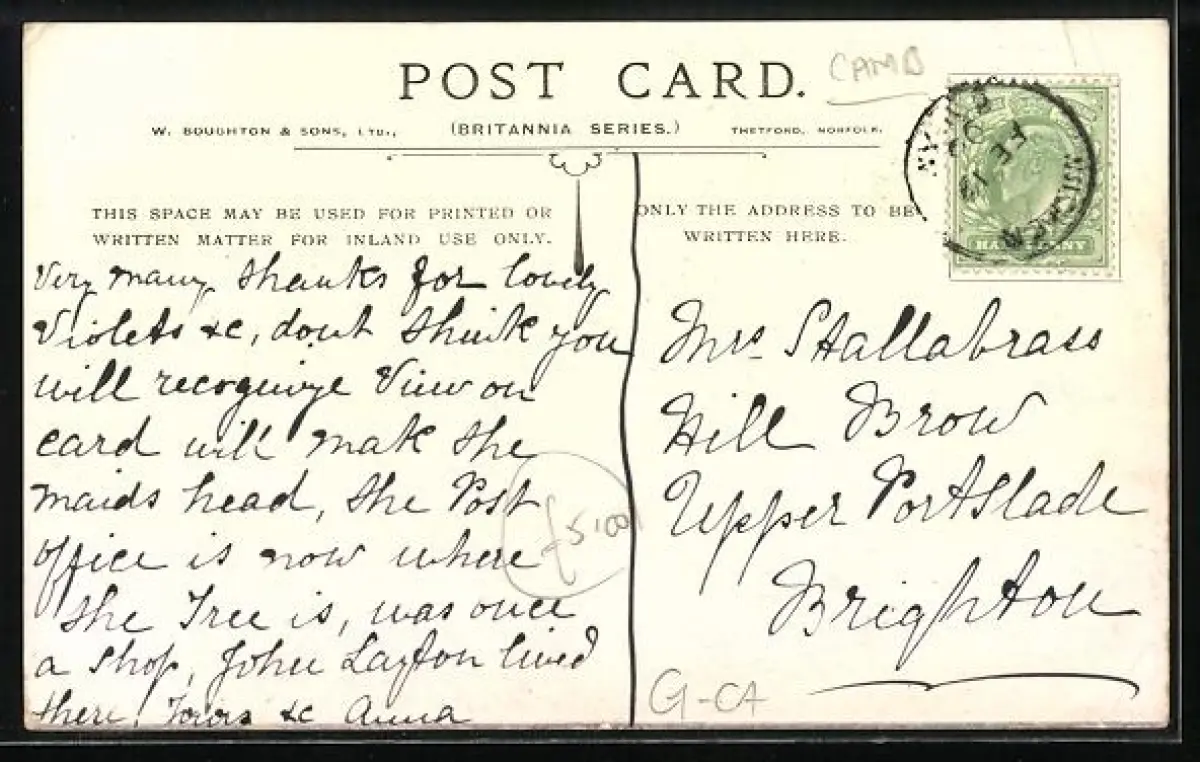 POST CARD.
CAMB
W. BOUGHTON & SONS, LTD., (BRITANNIA SERIES.) THETFORD, NORFOLK.
THIS SPACE MAY BE USED FOR PRINTED OR
WRITTEN MATTER FOR INLAND USE ONLY.
Very many thanks for lovely
Violets &c, dont think you
will recognize View on
card will mak the
maids head, the Post
office is now where
the Tree is, was once
a shop, John Layton lived
there, Yours &c Anna
£5.00
ONLY THE ADDRESS TO BE
WRITTEN HERE.
FE 13
HALFPENNY
Mrs Stallabrass
Hill Brow
Upper Portslade
Brighton
G-CA